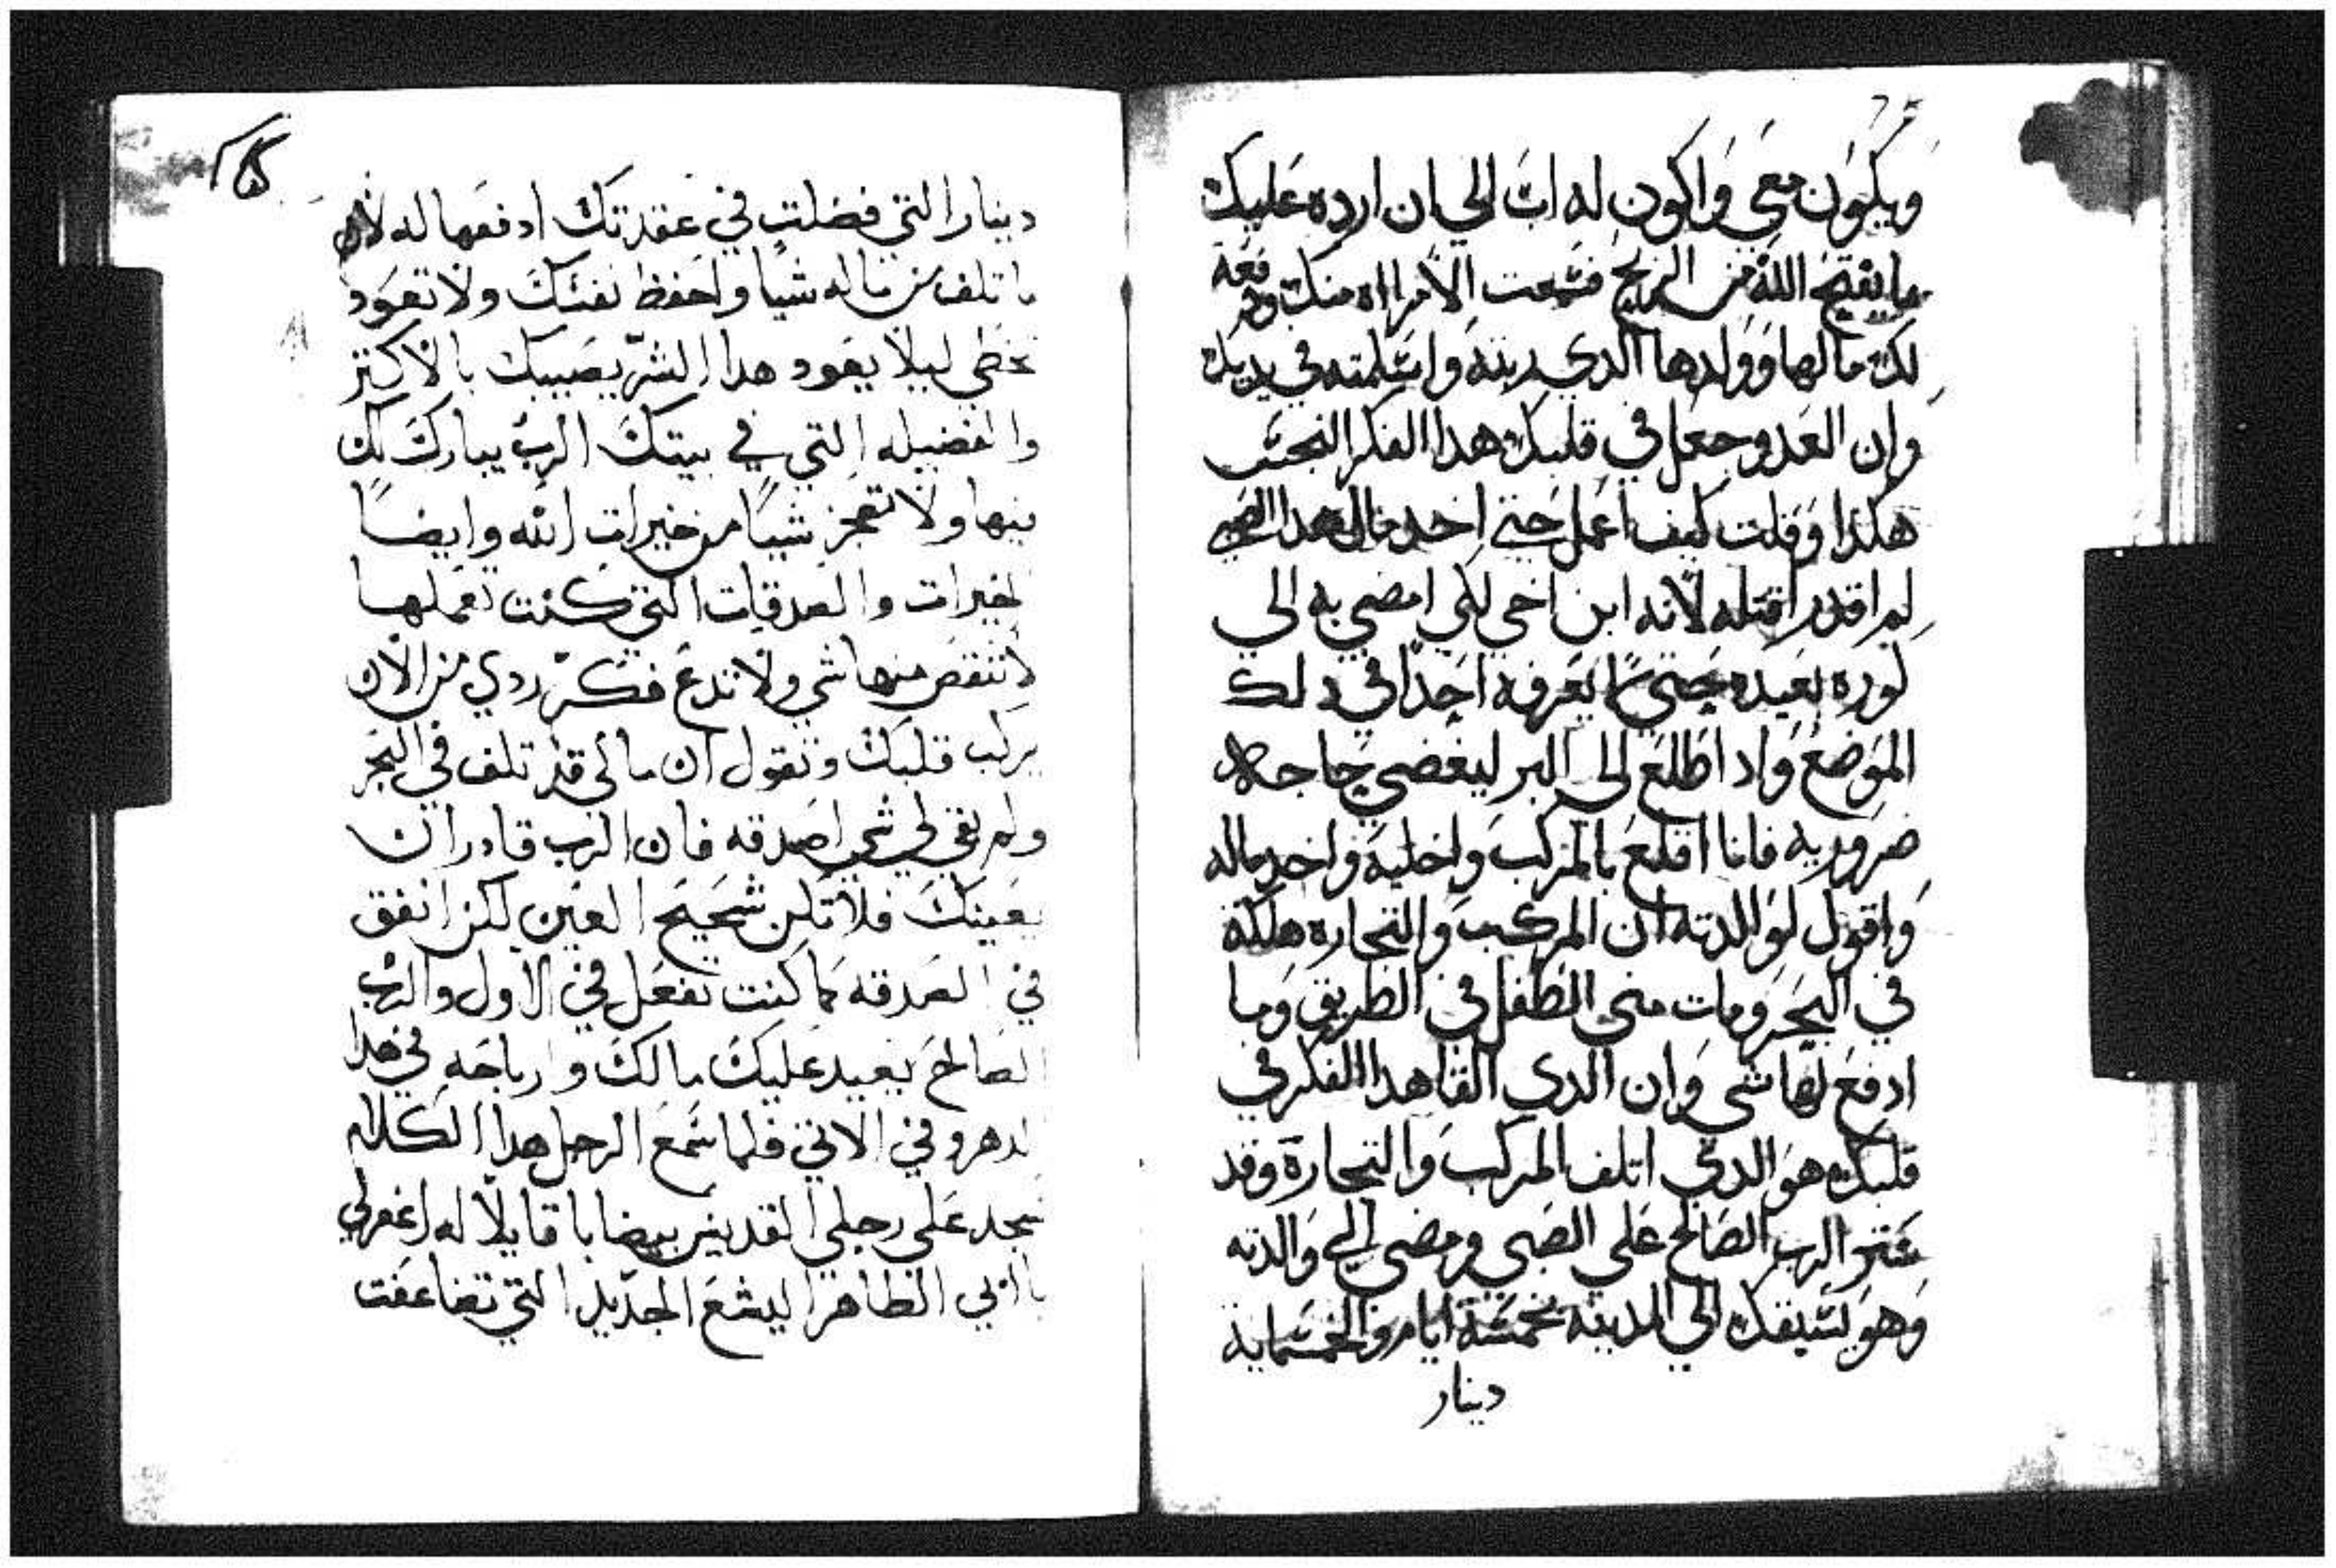 ويكون معي واكون له اب الي ان ارده عليك
بما يفتح الله من الربح فسمعت الامراه منك ودفعة
لك مالها وولدها الدي ربته واستلمته في يديك
وان العدو جعل في قلبك هدا الفكر النجس
هكذا وقلت كيف اعمل حتي اخد مال هدا الصبي
لم اقدر اقتله لانه ابن اخي لكي امضي به الي
كوره بعيده حتي لا يعرفه احدا في دلك
الموضع واد اطلع الي البر ليقضي حاجه
ضروريه فانا اقلع بالمركب واخليه واخد ماله
واقول لوالدته ان المركب والتجاره هلكة
في البحر ومات مني الطفل في الطريق وما
ادفع لها شي وان الدي القا هدا الفكر في
قلبك هو الدي اتلف المركب والتجارة وقد
ستر الرب الصالح علي الصبي ومضي الي والدته
وهو يسبقك الي المدينه بخمسة ايام والخمسماية
دينار
دينارا التي فضلت في عقدتك ادفعها له لان
ما تلف من ماله شيا واحفظ نفسك ولا تعود
تخطي ليلا يعود هدا الشر يصيبك بالاكتر
والفضيله التي في بيتك الرب يبارك لك
فيها ولا تعجز شيا من خيرات الله وايضا
الخيرات والصدقات التي كنت تعملها
لا تنقص منها شي ولا تدع فكر ردي من الان
يركب قلبك وتقول ان مالي قد تلف في البحر
ولم بقي لي شي اصدقه فان الرب قادر ان
يعينك فلا تكن شحيح العين لكن انفق
في الصدقه كما كنت تفعل في الاول والرب
الصالح يعيد عليك مالك وارباحه في هدا
الدهر وفي الاتي فلما سمع الرجل هدا الكلام
سجد علي رجلي القديس بيضابا قايلا له اغفرلي
يا ابي الطاهر اليشع الجديد التي تضاعفت